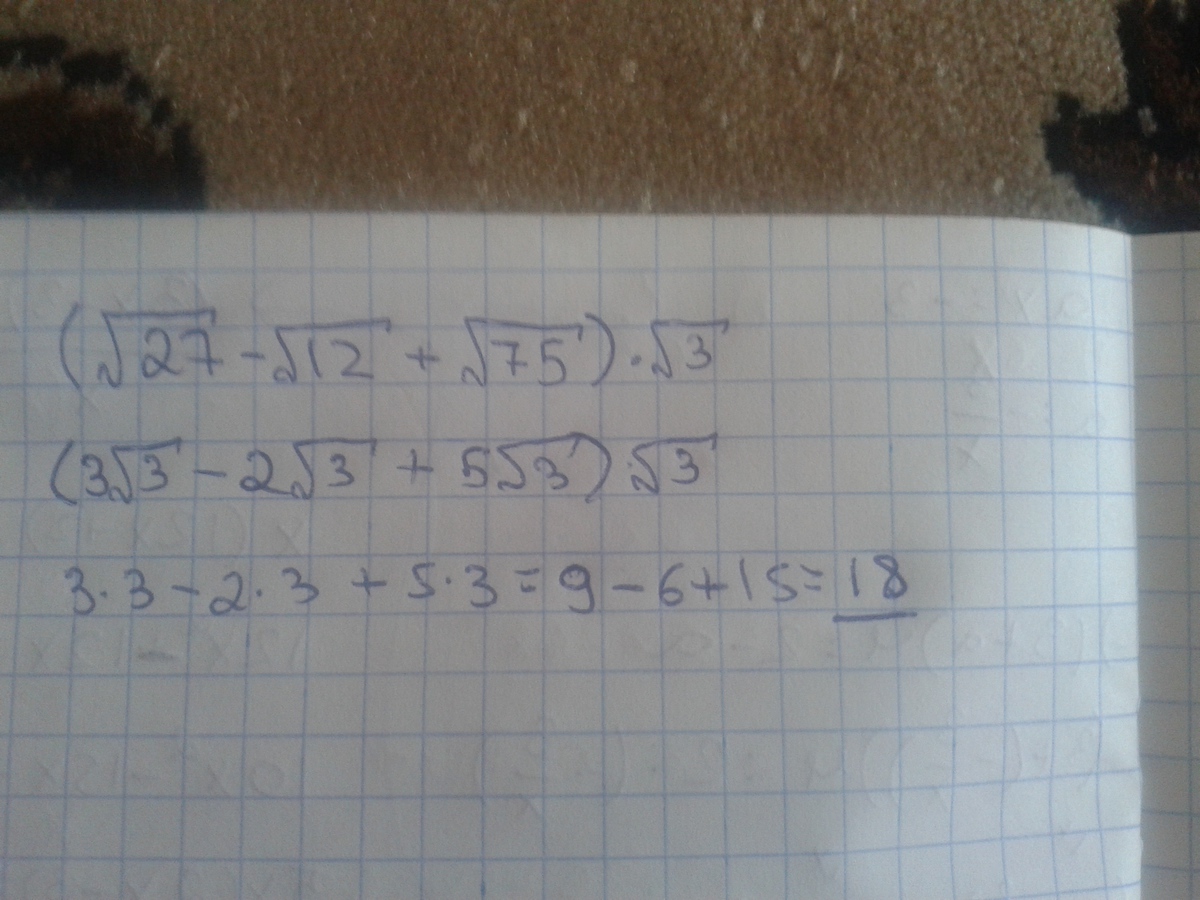 (√27 - √12 + √75) · √3
(3√3 - 2√3 + 5√3) · √3
3·3 - 2·3 + 5·3 = 9 - 6 + 15 = 18